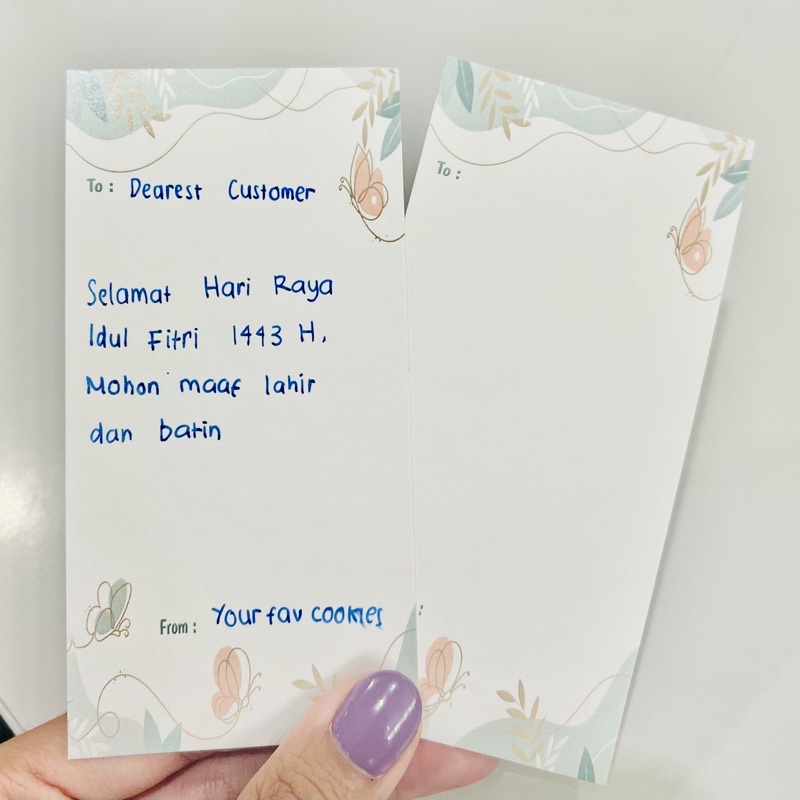 To : Dearest Customer
Selamat Hari Raya
Idul Fitri 1443 H,
Mohon maaf lahir
dan batin
From : Your fav cookies
To :
: